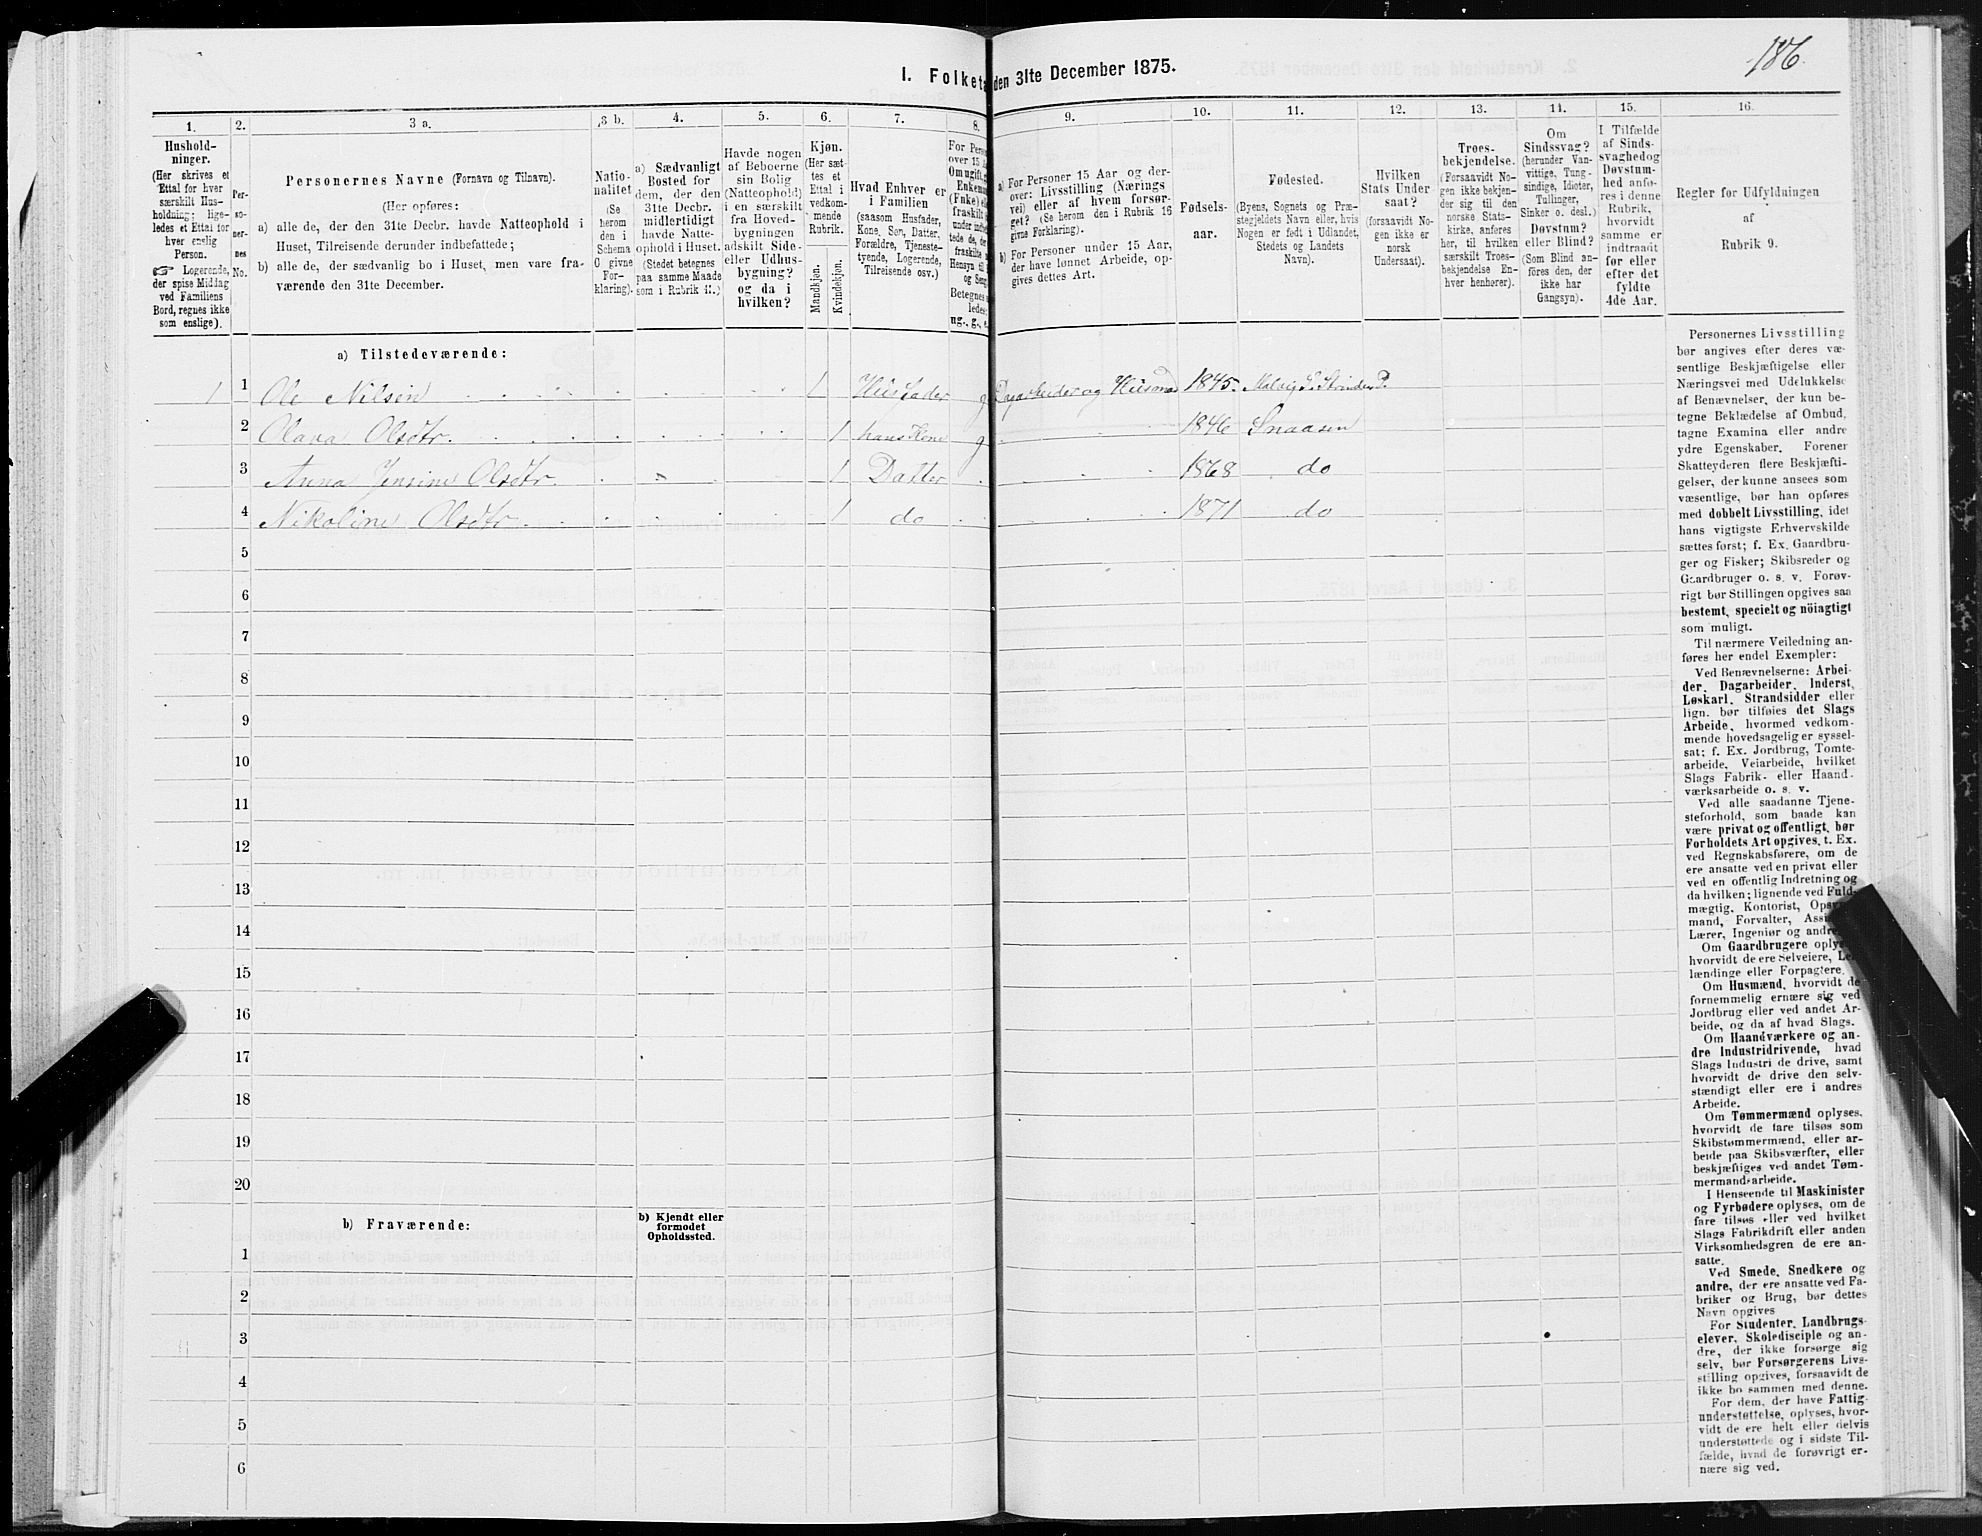 186.
I. Folketa den 31te December 1875.
1.
Hushold-
ninger.
(Her skrives et
Ettal for hver
særskilt Hus-
holdning; lige-
ledes et Ettal for
hver enslig
Person.
☞ Logerende,
der spise Middag
ved Familiens
Bord, regnes ikke
som enslige).
2.
Per-
so-
ner-
nes
No.
3 a.
Personernes Navne (Fornavn og Tilnavn).
(Her opføres:
a) alle de, der den 31te Decbr. havde Natteophold i
Huset, Tilreisende derunder indbefattede;
b) alle de, der sædvanlig bo i Huset, men vare fra-
værende den 31te December.
3 b.
Natio-
nalitet
(Se
herom
den i
Schema
O givne
For-
klaring).
4.
a) Sædvanligt
Bosted for
dem, der den
31te Decbr.
midlertidigt
havde Natte-
ophold i Huset.
(Stedet betegnes
paa samme Maade
som i Rubrik 11.)
5.
Havde nogen
af Beboerne
sin Bolig
(Natteophold)
i en særskilt
fra Hoved-
bygningen
adskilt Side-
eller Udhus-
bygning?
og da i
hvilken?
6.
Kjøn.
(Her sæt-
tes et
Ettal i
vedkom-
mende
Rubrik.
Mandkjøn.
Kvindekjøn.
7.
Hvad Enhver er
i Familien
(saasom Husfader,
Kone, Søn, Datter,
Forældre, Tjeneste-
tyende, Logerende,
Tilreisende osv.)
8.
For Perso
over 15 Aa
Om ugift, g
Enkema
(Enke) el
fraskilt
under
tede de, de
fraskilte
Hensyn til
og Seng
Betegnes
ledes:
ug., g., e.
9.
a) For Personer 15 Aar og der-
over: Livsstilling (Nærings
vei) eller af hvem forsør-
get? (Se herom den i Rubrik 16
givne Forklaring).
b) For Personer under 15 Aar,
der have lønnet Arbeide, op-
gives dettes Art.
10.
Fødsels-
aar.
11.
Fødested.
(Byens, Sognets og Præ-
stegjeldets Navn eller, hvis
Nogen er født i Udlandet,
Stedets og Landets
Navn).
12.
Hvilken
Stats Under
saat?
(forsaavidt No-
gen ikke er
norsk
Undersaat).
13.
Troes-
bekjendelse.
(Forsaavidt No-
gen ikke bekjen-
der sig til den
norske Stats-
kirke, anføres
her, til hvilken
særskilt Troes-
bekjendelse En-
hver henhører).
14.
Om
Sindssvag?
(herunder Van-
vittige, Tung-
sindige, Idioter,
Tullinger,
Sinker o. desl.)
Døvstum?
eller Blind?
(Som Blind an-
føres den, der
ikke har
Gangsyn).
15.
I Tilfælde
af Sinds-
svaghed og
Døvstum-
hed anfø-
res i denne
Rubrik,
hvorvidt
samme er
indtraadt
før eller
efter det
fyldte
4de Aar.
16.
Regler for Udfyldningen
af
Rubrik 9.
a) Tilstedeværende:
1 1 Ole Nilsen 1 Husfader g Dagarbeider og Husmand 1845. Malvig S. Strinden P.
2 Olava Olsdtr. 1 hans Kone g 1846 Snaasen
3 Anna Jensine Olsdtr. 1 Datter 1868 do
4 Nikoline Olsdtr. 1 do 1871 do
5
6
7
8
9
10
11
12
13
14
15
16
17
18
19
20
b) Fraværende:
b) Kjendt eller
formodet
Opholdssted.
1
2
3
4
5
6
Personernes Livsstilling
bør angives efter deres væ-
sentlige Beskjæftigelse eller
Næringsvei med Udelukkelse
af Benævnelser, der kun be-
tegne Beklædelse af Ombud,
tagne Examina eller andre
ydre Egenskaber. Forener
Skatteyderen flere Beskjæfti-
gelser, der kunne ansees som
væsentlige, bør han opføres
med dobbelt Livsstilling, idet
hans vigtigste Erhvervskilde
sættes først; f. Ex. Gaardbru-
ger og Fisker; Skibsreder og
Gaardbruger o. s. v. Forøv-
rigt bør Stillingen opgives saa
bestemt, specielt og nöiagtigt
som muligt.
Til nærmere Veiledning an-
føres her endel Exempler:
Ved Benævnelserne: Arbei-
der, Dagarbeider, Inderst,
Løskarl, Strandsidder eller
lign. bør tilføies det Slags
Arbeide, hvormed vedkom-
mende hovedsagelig er syssel-
sat; f. Ex. Jordbrug, Tomte-
arbeide, Veiarbeide, hvilket
Slags Fabrik- eller Haand-
værksarbeide o. s. v.
Ved alle saadanne Tjene-
steforhold, som baade kan
være privat og offentligt, bør
Forholdets Art opgives, t. Ex.
ved Regnskabsførere, om de
ere ansatte ved en privat eller
ved en offentlig Indretning og
da hvilken; lignende ved Fuld-
mægtig, Kontorist, Opsyns-
mand, Forvalter, Assi
Lærer, Ingeniør og andre.
Om Gaardbrugere oplyses,
hvorvidt de ere Selveiere, Lei-
lændinge eller Forpagtere.
Om Husmænd, hvorvidt de
fornemmelig ernære sig ved
Jordbrug eller ved andet Ar-
beide, og da af hvad Slags.
Om Haandværkere og an-
dre Industridrivende, hvad
Slags Industri de drive, samt
hvorvidt de drive den selv-
stændigt eller ere i andres
Arbeide.
Om Tømmermænd oplyses,
hvorvidt de fare tilsøs som
Skibstømmermænd, eller ar-
beide paa Skibsværfter, eller
beskjæftiges ved andet Tøm-
mermandsarbeide.
I Henseende til Maskinister
og Fyrbødere oplyses, om de
fare tilsøs eller ved hvilket
Slags Fabrikdrift eller anden
Virksomhedsgren de ere an-
satte.
Ved Smede, Snedkere og
andre, der ere ansatte ved Fa-
briker og Brug, bør dettes
Navn opgives
For Studenter, Landbrugs-
elever, Skoledisciple og an-
dre, der ikke forsørge sig
selv, bør Forsørgerens Livs-
stilling opgives, forsaavidt de
ikke bo sammen med denne.
For dem, der have Fattig-
understøttelse, oplyses, hvor-
vidt de ere helt eller delvis
understøttede og i sidste Til-
fælde, hvad de forøvrigt er-
nære sig ved.